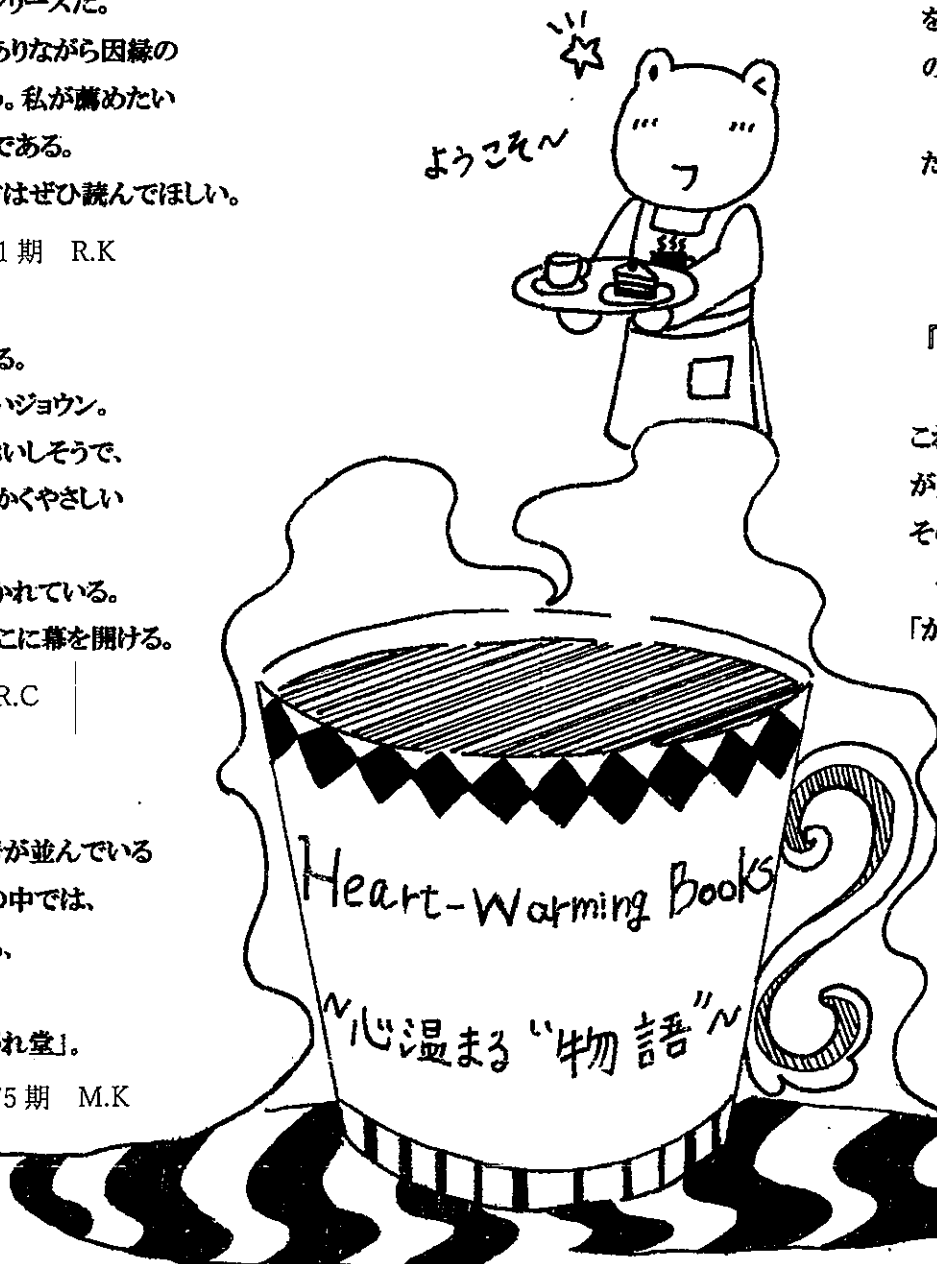 リーズだ。
ありながら因縁の
。私が薦めたい
である。
はぜひ読んでほしい。
1期 R.K
る。
いジョウン。
おいしそうで、
かくやさしい
かれている。
こに幕を開ける。
R.C
が並んでいる
の中では、
れ堂」。
75期 M.K
ようこそ～
Heart-Warming Books
～心温まる“物語”～
を
の
た
『
これ
が
その
「か